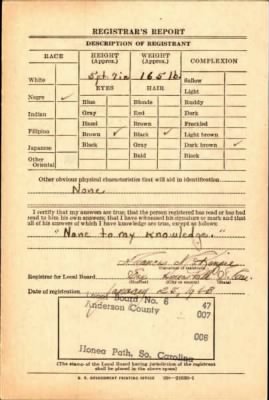 REGISTRAR'S REPORT
DESCRIPTION OF REGISTRANT
RACE HEIGHT (Approx.) WEIGHT (Approx.) COMPLEXION
White 5 ft. 7 in 165 lb. Sallow
EYES HAIR Light
Negro ✓ Blue Blonde Ruddy
Indian Gray Red Dark
Hazel Brown Freckled
Filipino Brown ✓ Black ✓ Light brown
Japanese Black Gray Dark brown ✓
Other Oriental Bald Black
Other obvious physical characteristics that will aid in identification
None
I certify that my answers are true; that the person registered has read or has had
read to him his own answers; that I have witnessed his signature or mark and that
all of his answers of which I have knowledge are true, except as follows:
"None to my knowledge."
Registrar for Local Board
(City or county) (State)
Date of registration
Local Board No. 6 47
Anderson County 007
006
Honea Path, So. Carolina
(The stamp of the Local Board having jurisdiction of the registrant
shall be placed in the above space.)
U. S. GOVERNMENT PRINTING OFFICE